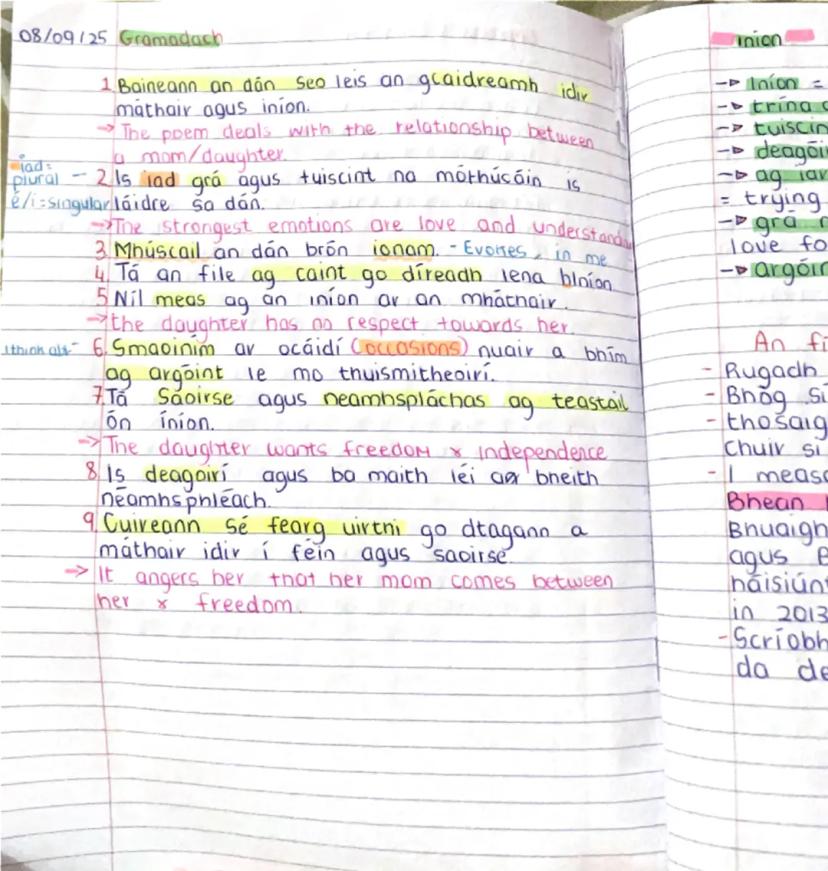 08/09/25 Gramadach
1 Baineann an dán seo leis an gcaidreamh idir
máthair agus iníon.
→ The poem deals with the relationship between
a mom/daughter.
iad=
plural - 2 Is iad grá agus tuiscint na mothúcáin is
é/í=singular láidre sa dán.
→ The strongest emotions are love and understanding
3 Mhúscail an dán brón ionam. - Evokes, in me
4 Tá an file ag caint go díreadh lena hiníon
5 Níl meas ag an iníon ar an mháthair.
→ the daughter has no respect towards her.
I think abt - 6. Smaoiním ar ócáidí (occasions) nuair a bhím
ag argóint le mo thuismitheoirí.
7. Tá Saoirse agus neamhspláchas ag teastail
ón iníon.
→ The daughter wants freedom & independence
8. Is deagóirí agus ba maith léi a bheith
néamhsphléach.
9. Cuireann sé fearg uirthi go dtagann a
máthair idir í féin agus saoirse.
→ It angers her that her mom comes between
her & freedom.
iníon
→ Iníon =
→ trína
→ tuiscin
→ deagói
→ ag iar
= trying
→ grá
love fo
→ argóin
An fi
- Rugadh
- Bhog sí
- thosaig
Chuir sí
- I measc
Bhean
Bhuaigh
agus
náisiún
in 2013
- Scríobh
da de